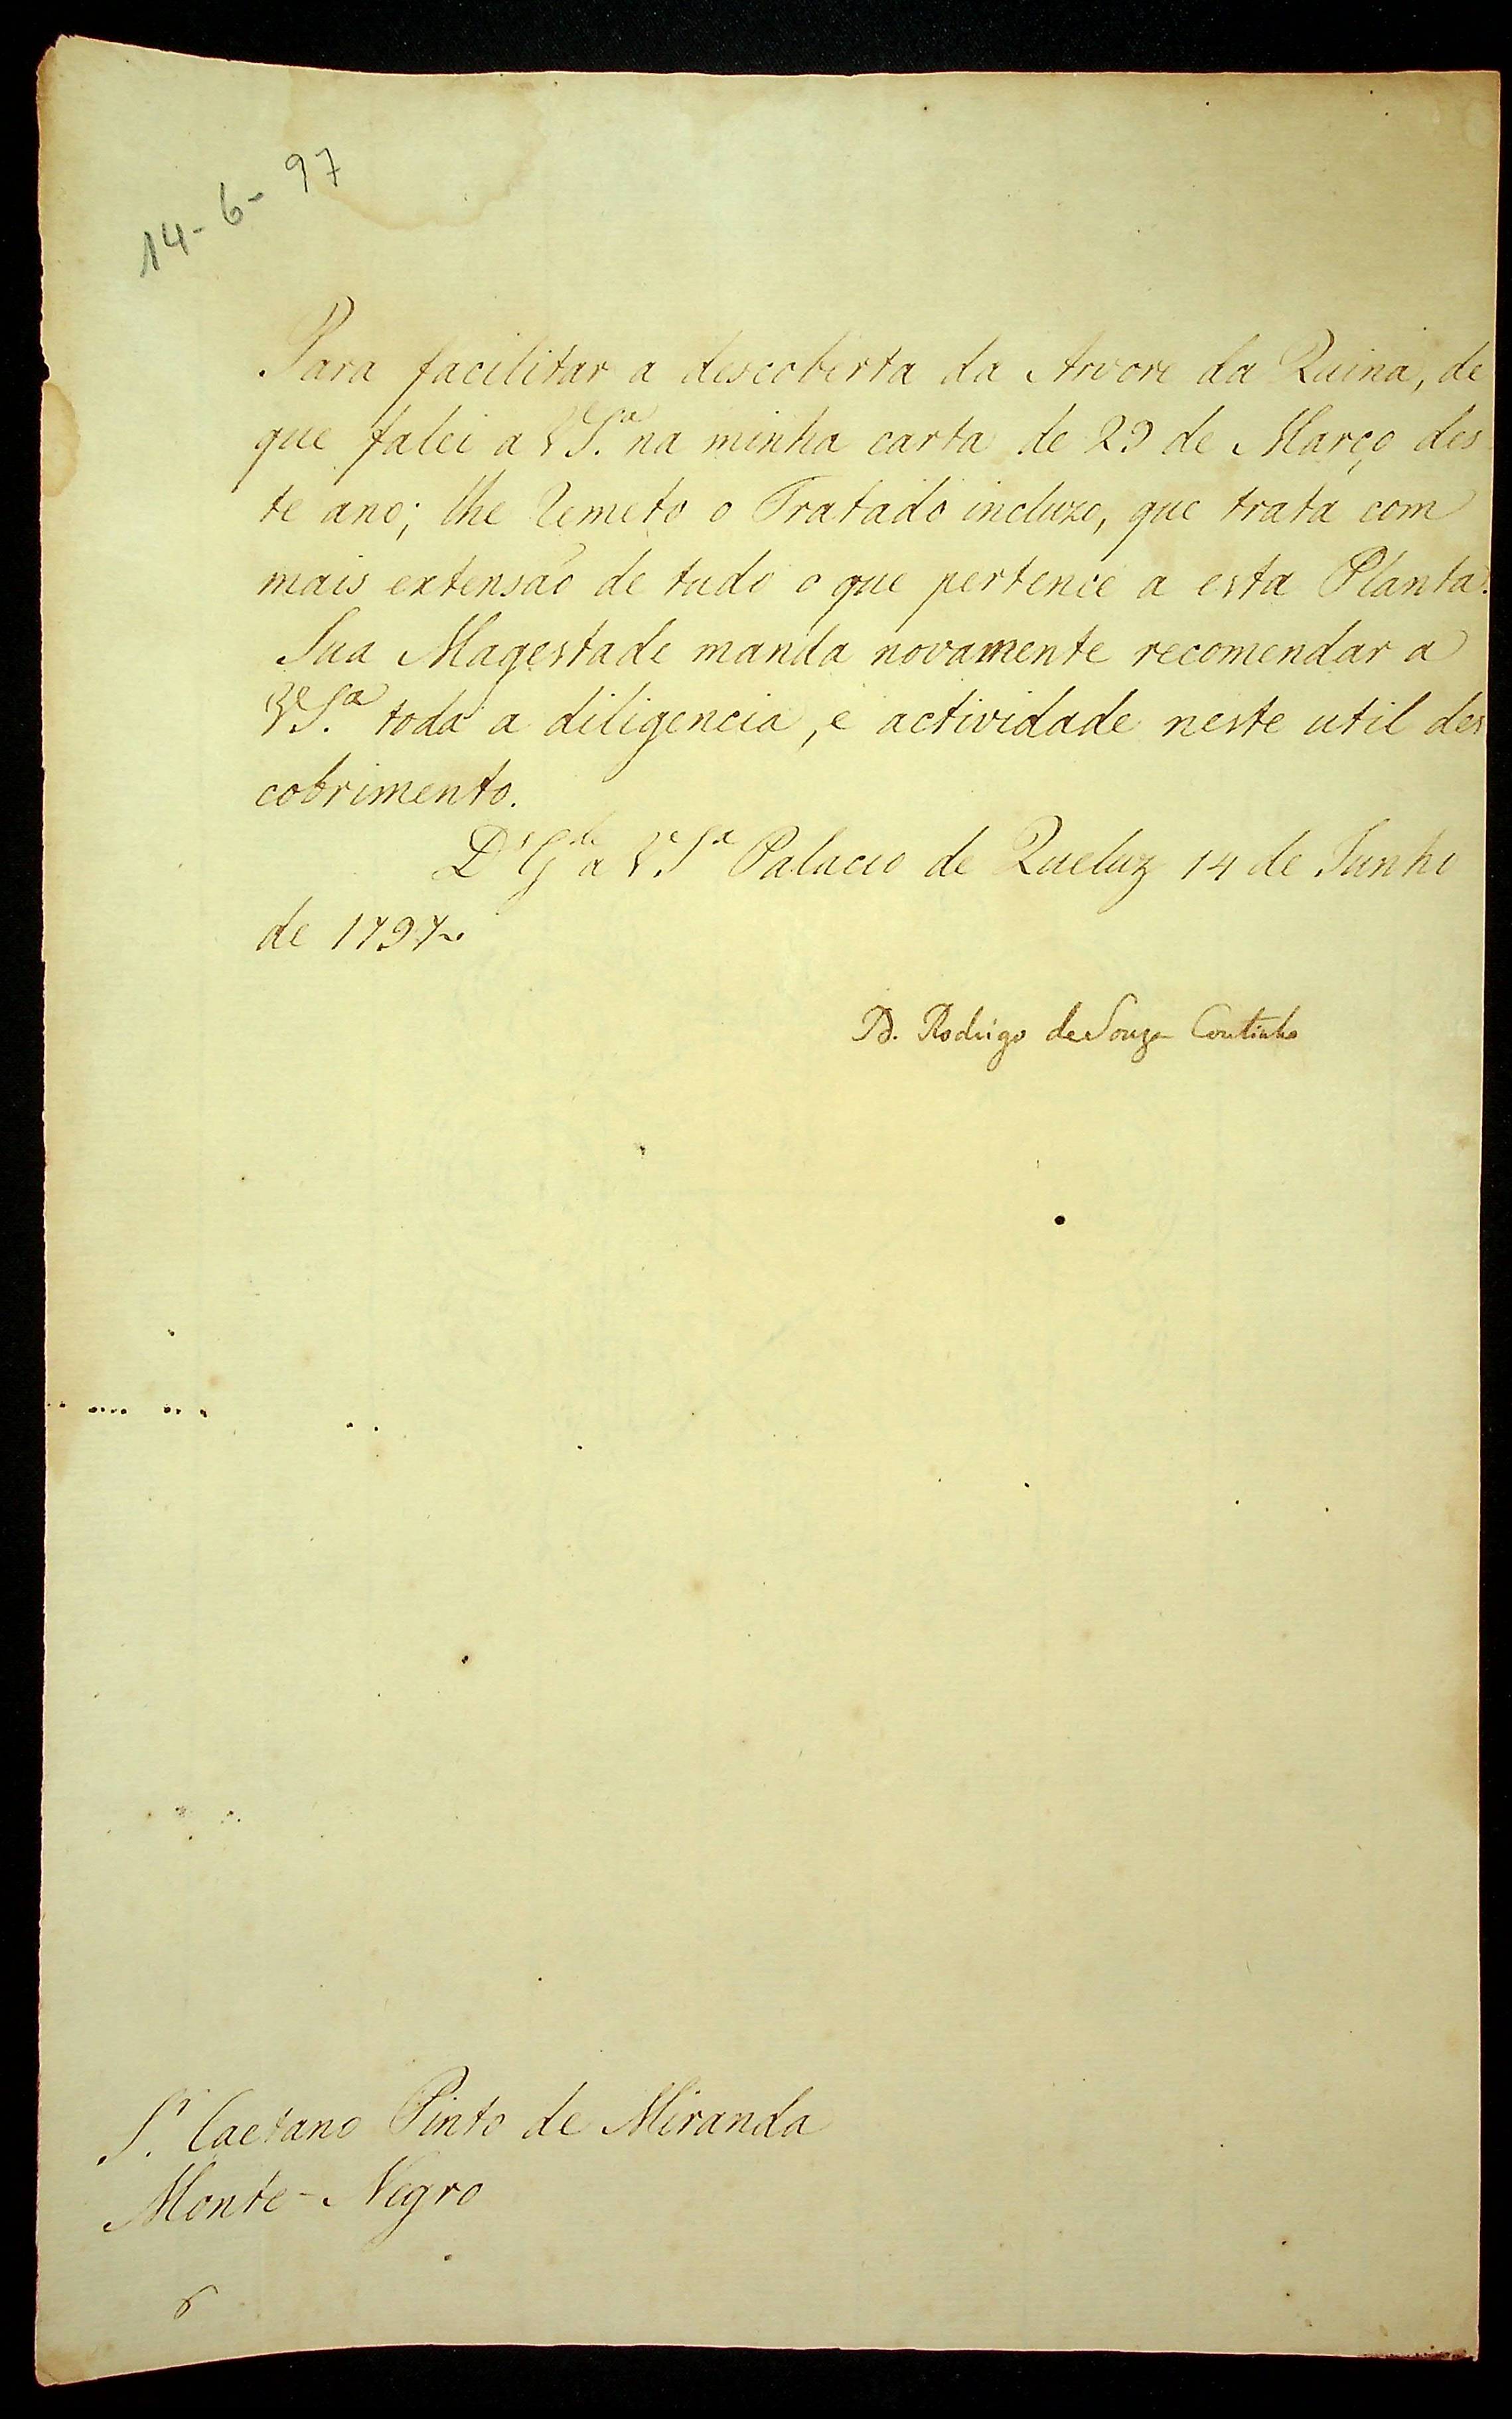 14-6-97
Para facilitar a descoberta da Arvore da Quina, de
que falei a VS.ª na minha carta de 29 de Março des
te ano; lhe Remeto o Tratado incluzo, que trata com
mais extensão de tudo o que pertence a esta Planta.
Sua Magestade manda novamente recomendar a
VS.ª toda a diligencia, e actividade neste util des
cobrimento.
D.s G.de a VS.ª Palacio de Queluz 14 de Junho
de 1797
D. Rodrigo de Souza Coutinho
S.r Caetano Pinto de Miranda
Monte-Negro